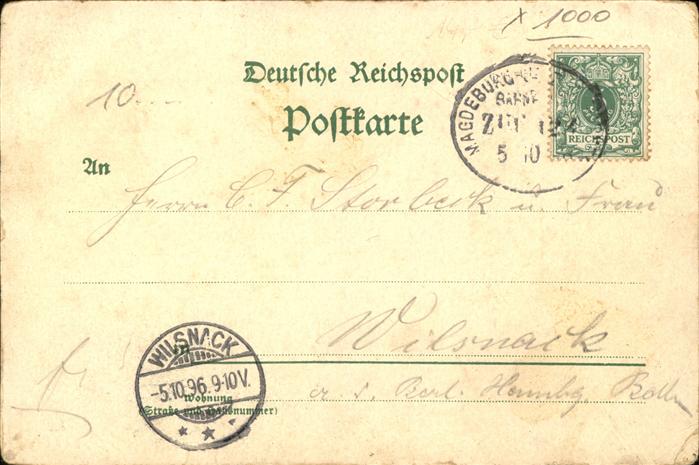 x 1000
Deutsche Reichspost
Postkarte
10
MAGDEBURG
BAHNP
ZUG 124
5 10
REICHSPOST
An
Herrn C. F. Storbeck u. Frau
in
Wilsnack
WILSNACK
-5.10.96.9-10V.
Wohnung
(Straße und Hausnummer)
a. d. Berl. Hambg. Bahn